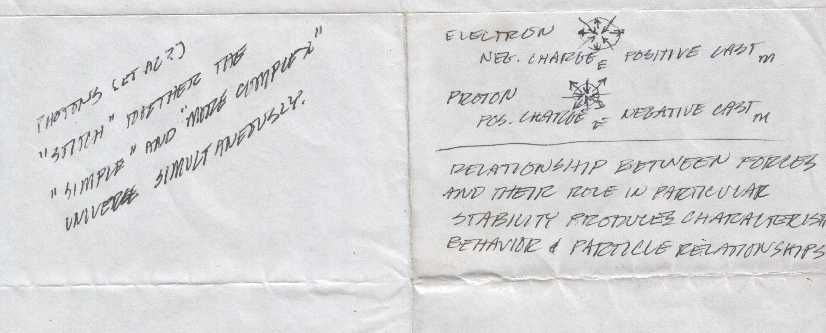 PHOTONS (ET AL?)
"STITCH" TOGETHER THE
"SIMPLE" AND "MORE COMPLEX"
UNIVERSE SIMULTANEOUSLY.
ELECTRON
NEG. CHARGE E POSITIVE CAST m
PROTON
POS. CHARGE E NEGATIVE CAST m
RELATIONSHIP BETWEEN FORCES
AND THEIR ROLE IN PARTICULAR
STABILITY PRODUCES CHARACTERIST
BEHAVIOR & PARTICLE RELATIONSHIPS